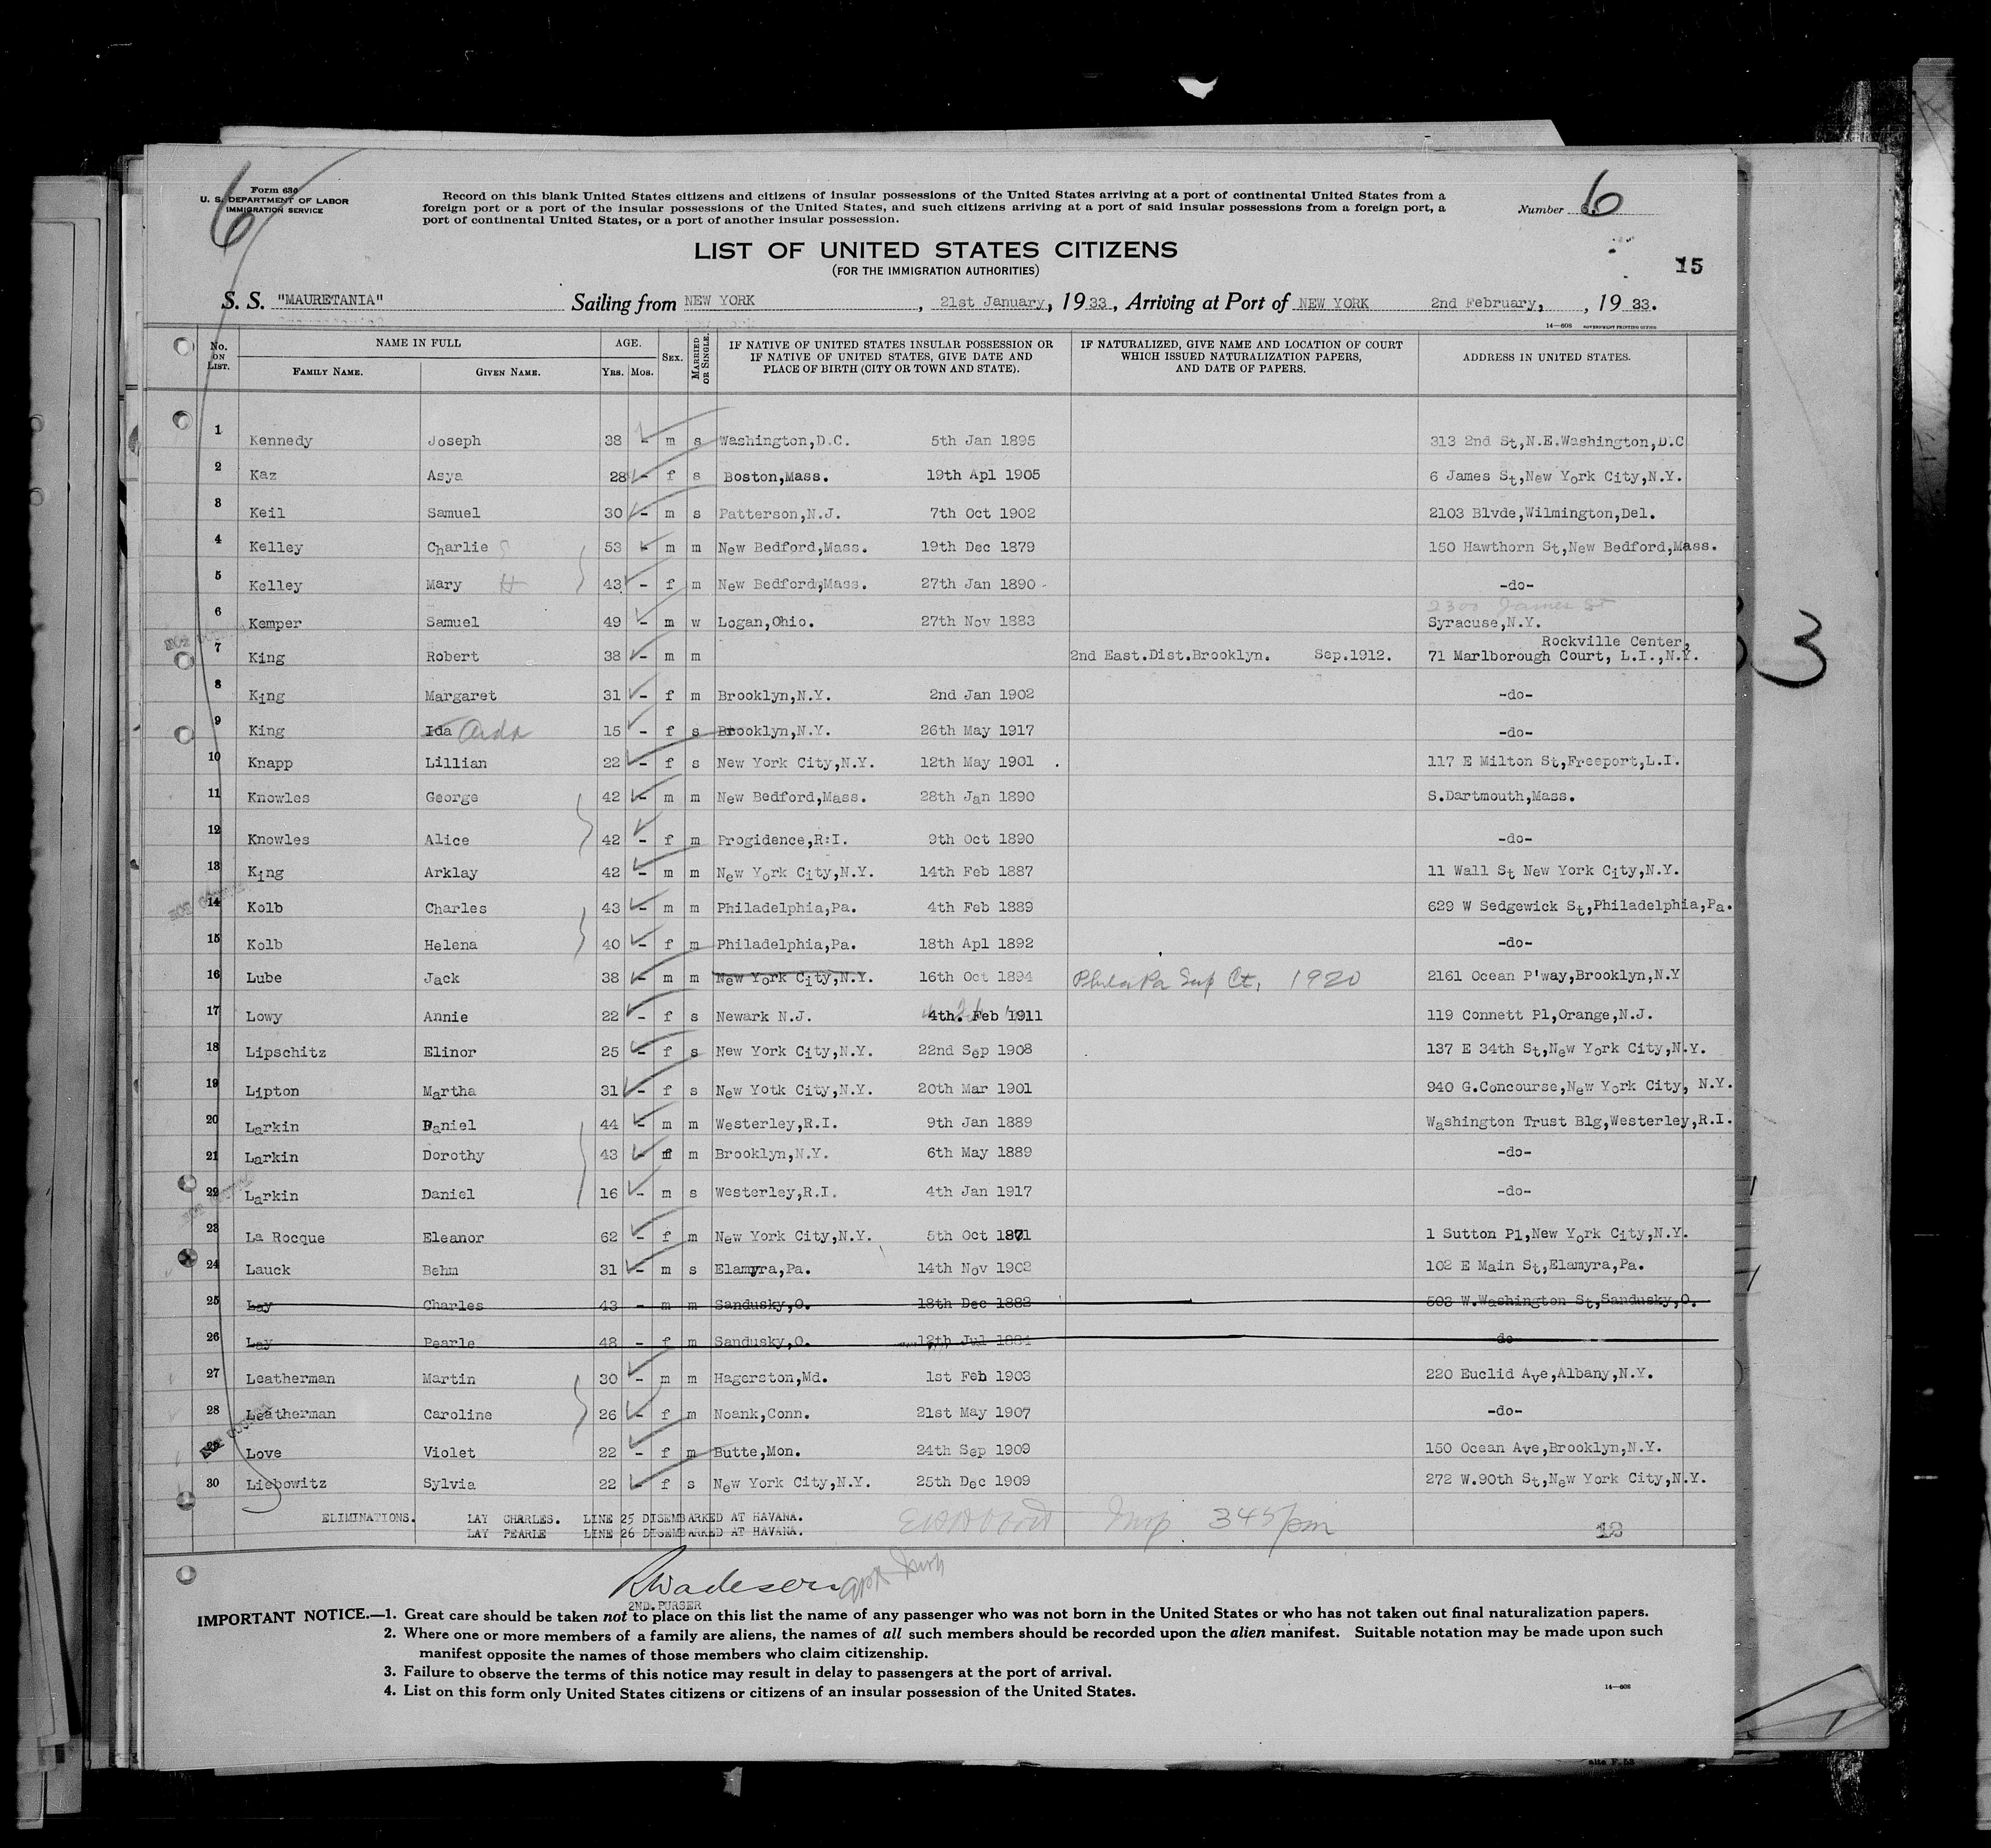 Form 630
U. S. DEPARTMENT OF LABOR
IMMIGRATION SERVICE
6
Record on this blank United States citizens and citizens of insular possessions of the United States arriving at a port of continental United States from a
foreign port or a port of the insular possessions of the United States, and such citizens arriving at a port of said insular possessions from a foreign port, a
port of continental United States, or a port of another insular possession.
Number 6
LIST OF UNITED STATES CITIZENS
(FOR THE IMMIGRATION AUTHORITIES)
15
S. S. "MAURETANIA" Sailing from NEW YORK , 21st January, 1933, Arriving at Port of NEW YORK 2nd February, , 1933.
14—608 GOVERNMENT PRINTING OFFICE
No. ON LIST. NAME IN FULL AGE. SEX. MARRIED OR SINGLE. IF NATIVE OF UNITED STATES INSULAR POSSESSION OR IF NATIVE OF UNITED STATES, GIVE DATE AND PLACE OF BIRTH (CITY OR TOWN AND STATE). IF NATURALIZED, GIVE NAME AND LOCATION OF COURT WHICH ISSUED NATURALIZATION PAPERS, AND DATE OF PAPERS. ADDRESS IN UNITED STATES.
FAMILY NAME. GIVEN NAME. YRS. MOS.
1 Kennedy Joseph 38 - m s Washington,D.C. 5th Jan 1895 313 2nd St,N.E.Washington,D.C
2 Kaz Asya 28 - f s Boston,Mass. 19th Apl 1905 6 James St,New York City,N.Y.
3 Keil Samuel 30 - m s Patterson,N.J. 7th Oct 1902 2103 Blvde,Wilmington,Del.
4 Kelley Charlie 53 - m m New Bedford,Mass. 19th Dec 1879 150 Hawthorn St,New Bedford,Mass.
5 Kelley Mary H 43 - f m New Bedford,Mass. 27th Jan 1890 -do-
2300 James St
6 Kemper Samuel 49 - m w Logan,Ohio. 27th Nov 1883 Syracuse,N.Y.
Rockville Center,
7 King Robert 38 - m m 2nd East.Dist.Brooklyn. Sep.1912. 71 Marlborough Court, L.I.,N.Y.
8 King Margaret 31 - f m Brooklyn,N.Y. 2nd Jan 1902 -do-
9 King Ida Ada 15 - f s Brooklyn,N.Y. 26th May 1917 -do-
10 Knapp Lillian 22 - f s New York City,N.Y. 12th May 1901 . 117 E Milton St,Freeport,L.I.
11 Knowles George 42 - m m New Bedford,Mass. 28th Jan 1890 S.Dartmouth,Mass.
12 Knowles Alice 42 - f m Progidence,R:I. 9th Oct 1890 -do-
13 King Arklay 42 - m m New York City,N.Y. 14th Feb 1887 11 Wall St New York City,N.Y.
14 Kolb Charles 43 - m m Philadelphia,Pa. 4th Feb 1889 629 W Sedgewick St,Philadelphia,Pa.
15 Kolb Helena 40 - f m Philadelphia,Pa. 18th Apl 1892 -do-
16 Lube Jack 38 - m m New York City,N.Y. 16th Oct 1894 Phila Pa Sup Ct, 1920 2161 Ocean P'way,Brooklyn,N.Y
17 Lowy Annie 22 - f s Newark N.J. 4th. Feb 1911 119 Connett Pl,Orange,N.J.
18 Lipschitz Elinor 25 - f s New York City,N.Y. 22nd Sep 1908 137 E 34th St,New York City,N.Y.
19 Lipton Martha 31 - f s New Yotk City,N.Y. 20th Mar 1901 940 G.Concourse,New York City, N.Y.
20 Larkin Daniel 44 - m m Westerley,R.I. 9th Jan 1889 Washington Trust Blg,Westerley,R.I.
21 Larkin Dorothy 43 - f m Brooklyn,N.Y. 6th May 1889 -do-
22 Larkin Daniel 16 - m s Westerley,R.I. 4th Jan 1917 -do-
23 La Rocque Eleanor 62 - f m New York City,N.Y. 5th Oct 1871 1 Sutton Pl,New York City,N.Y.
24 Lauck Behm 31 - m s Elamyra,Pa. 14th Nov 1902 102 E Main St,Elamyra,Pa.
25 Lay Charles 43 - m m Sandusky,O. 18th Dec 1882 503 W.Washington St,Sandusky,O.
26 Lay Pearle 48 - f m Sandusky,O. 12th Jul 1884 -do-
27 Leatherman Martin 30 - m m Hagerston,Md. 1st Feb 1903 220 Euclid Ave,Albany,N.Y.
28 Leatherman Caroline 26 - f m Noank,Conn. 21st May 1907 -do-
29 Love Violet 22 - f m Butte,Mon. 24th Sep 1909 150 Ocean Ave,Brooklyn,N.Y.
30 Liebowitz Sylvia 22 - f s New York City,N.Y. 25th Dec 1909 272 W.90th St,New York City,N.Y.
ELIMINATIONS. LAY CHARLES. LINE 25 DISEMBARKED AT HAVANA.
LAY PEARLE LINE 26 DISEMBARKED AT HAVANA.
Insp 345 pm
12
3
2ND. PURSER
IMPORTANT NOTICE.—1. Great care should be taken not to place on this list the name of any passenger who was not born in the United States or who has not taken out final naturalization papers.
2. Where one or more members of a family are aliens, the names of all such members should be recorded upon the alien manifest. Suitable notation may be made upon such
manifest opposite the names of those members who claim citizenship.
3. Failure to observe the terms of this notice may result in delay to passengers at the port of arrival.
4. List on this form only United States citizens or citizens of an insular possession of the United States.
14—608